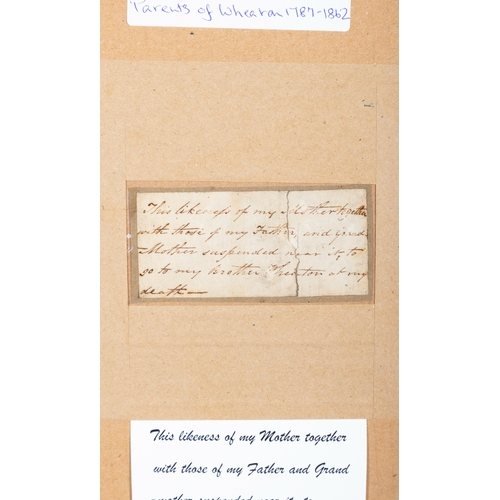 Parents of Wheaton 1787-1862
This likeness of my Mother together
with those of my Father, and Grand
Mother suspended near it, to
go to my brother Wheaton at my
death—
This likeness of my Mother together
with those of my Father and Grand
mother suspended near it, to